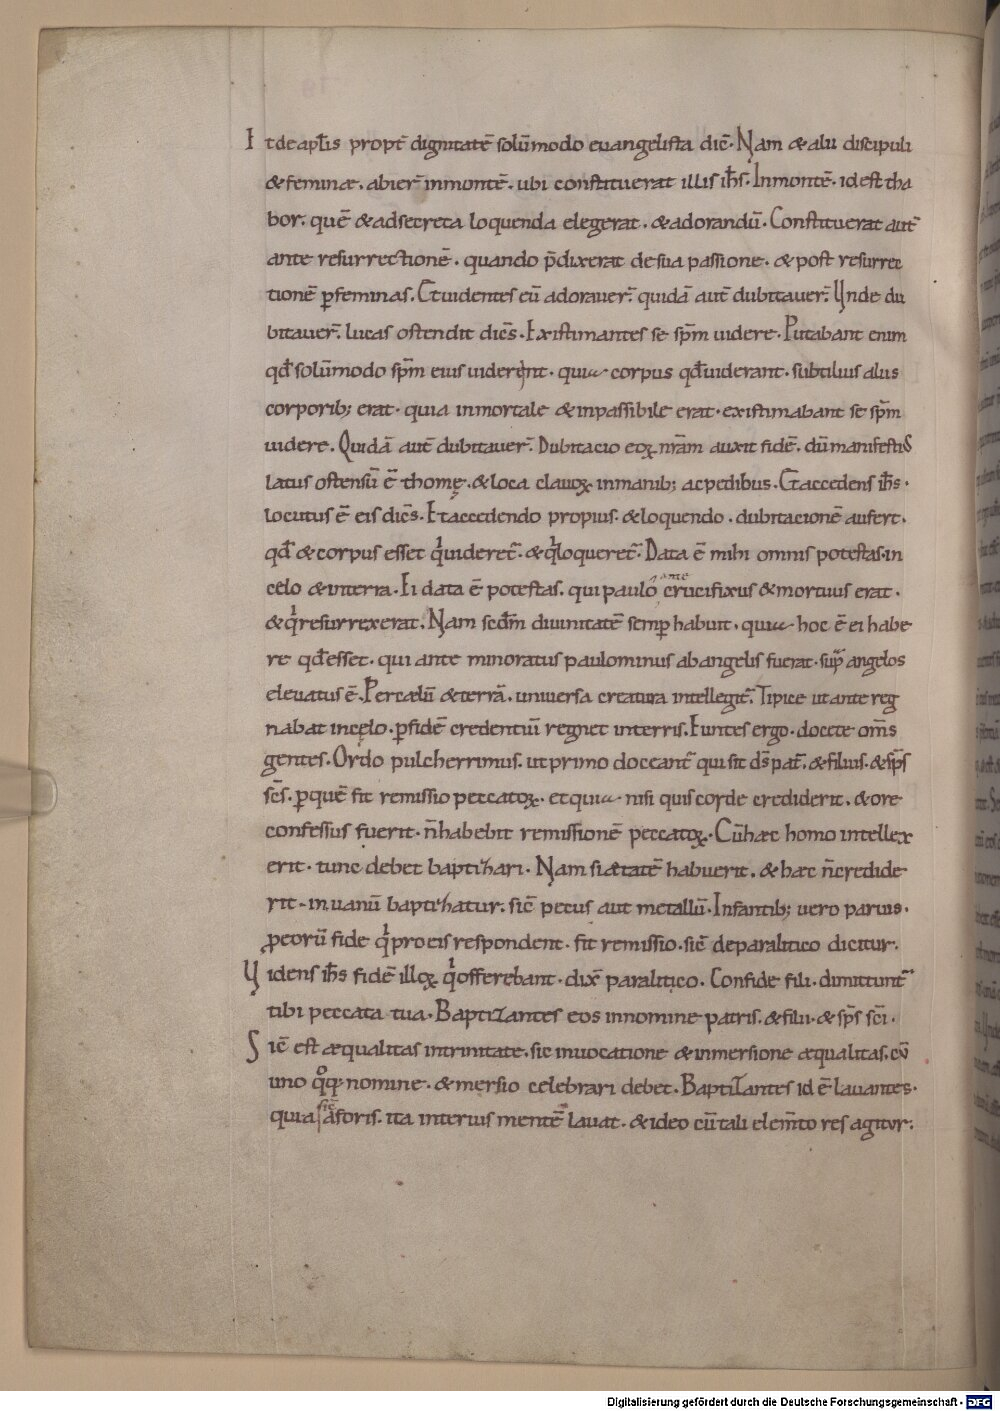 It de apl̄is propt̄ dignitatē solūmodo euangelista dic̄. Nam & alii discipuli
& feminæ. abier̄ inmontē. ubi constituerat illis ih̄s. Inmontē. id est tha
bor. quē & adsecreta loquenda elegerat. & adorandū. Constituerat aut̄
ante resurrectionē. quando p̄dixerat desua passione. & post resurrec
tionē ꝑfeminas. Et uidentes eū adorauer̄. quidā aut̄ dubitauer̄. Unde du
bitauer̄. lucas ostendit dic̄s. Existimantes se sp̄m uidere. Putabant enim
qđ solūmodo sp̄m eius uiderent. quia corpus qđ uiderant. subtilius aliis
corporib; erat. quia inmortale & inpassibile erat. existimabant se sp̄m
uidere. Quidā aut̄ dubitauer̄. Dubitacio eoꝝ nr̄am auxit fidē. dū manifestis
latus ostensū ē thomę. & loca clauoꝝ inmanib; ac pedibus. Et accedens ih̄s.
locutus ē eis dic̄s. Et accedendo propius. & loquendo. dubitacionē aufert.
qđ & corpus esset qͥ uideret̄. & qͥ loqueret̄. Data ē mihi omnis potestas. in
celo & interra. Ei data ē potestas. qui pauló ante crucifixus & mortuus erat.
& qͥ resurrexerat. Nam scđm diuinitatē semꝑ habuit. quia hoc ē ei habe
re qđ esset. qui ante minoratus paulominus ab angelis fuerat. sup̄ angelos
eleuatus ē. Per cælū & terrā. uniuersa creatura intellegit̄. Tipice ut ante reg
nabat incęlo. ꝑfidē credentiū regnet interris. Euntes ergo. docete om̄s
gentes. Ordo pulcherrimus. ut primo doceant̄ qui sit ds̄ pat̄. & filius. & sp̄s
sc̄s. ꝑquē fit remissio peccatoꝝ. et quia nisi quis corde crediderit. & ore
confessus fuerit. n̄ habebit remissionē peccatoꝝ. Cū hæc homo intellex
erit. tunc debet baptizari. Nam si ætatē habuerit. & hæc n̄ credide
rit. in uanū baptizatur. sic̄ pecus aut metallū. Infantib; uero paruis.
ꝑeorū fide qͥ pro eis respondent. fit remissio. sic̄ de paralitico dicitur.
Uidens ih̄s fidē illoꝝ qͥ offerebant. dix̄ paralitico. Confide fili. dimittunt̄
tibi peccata tua. Baptizantes eos innomine patris. & filii. & sp̄s sc̄i.
Sic̄ est æqualitas intrinitate. sic inuocatione & inmersione æqualitas. cū
uno qͦq; nomine. & mersio celebrari debet. Baptizantes id ē lauantes.
quia sic̄ aforis. ita interius mentē lauat. & ideo cū tali elem̄to res agitur.
Digitalisierung gefördert durch die Deutsche Forschungsgemeinschaft - DFG